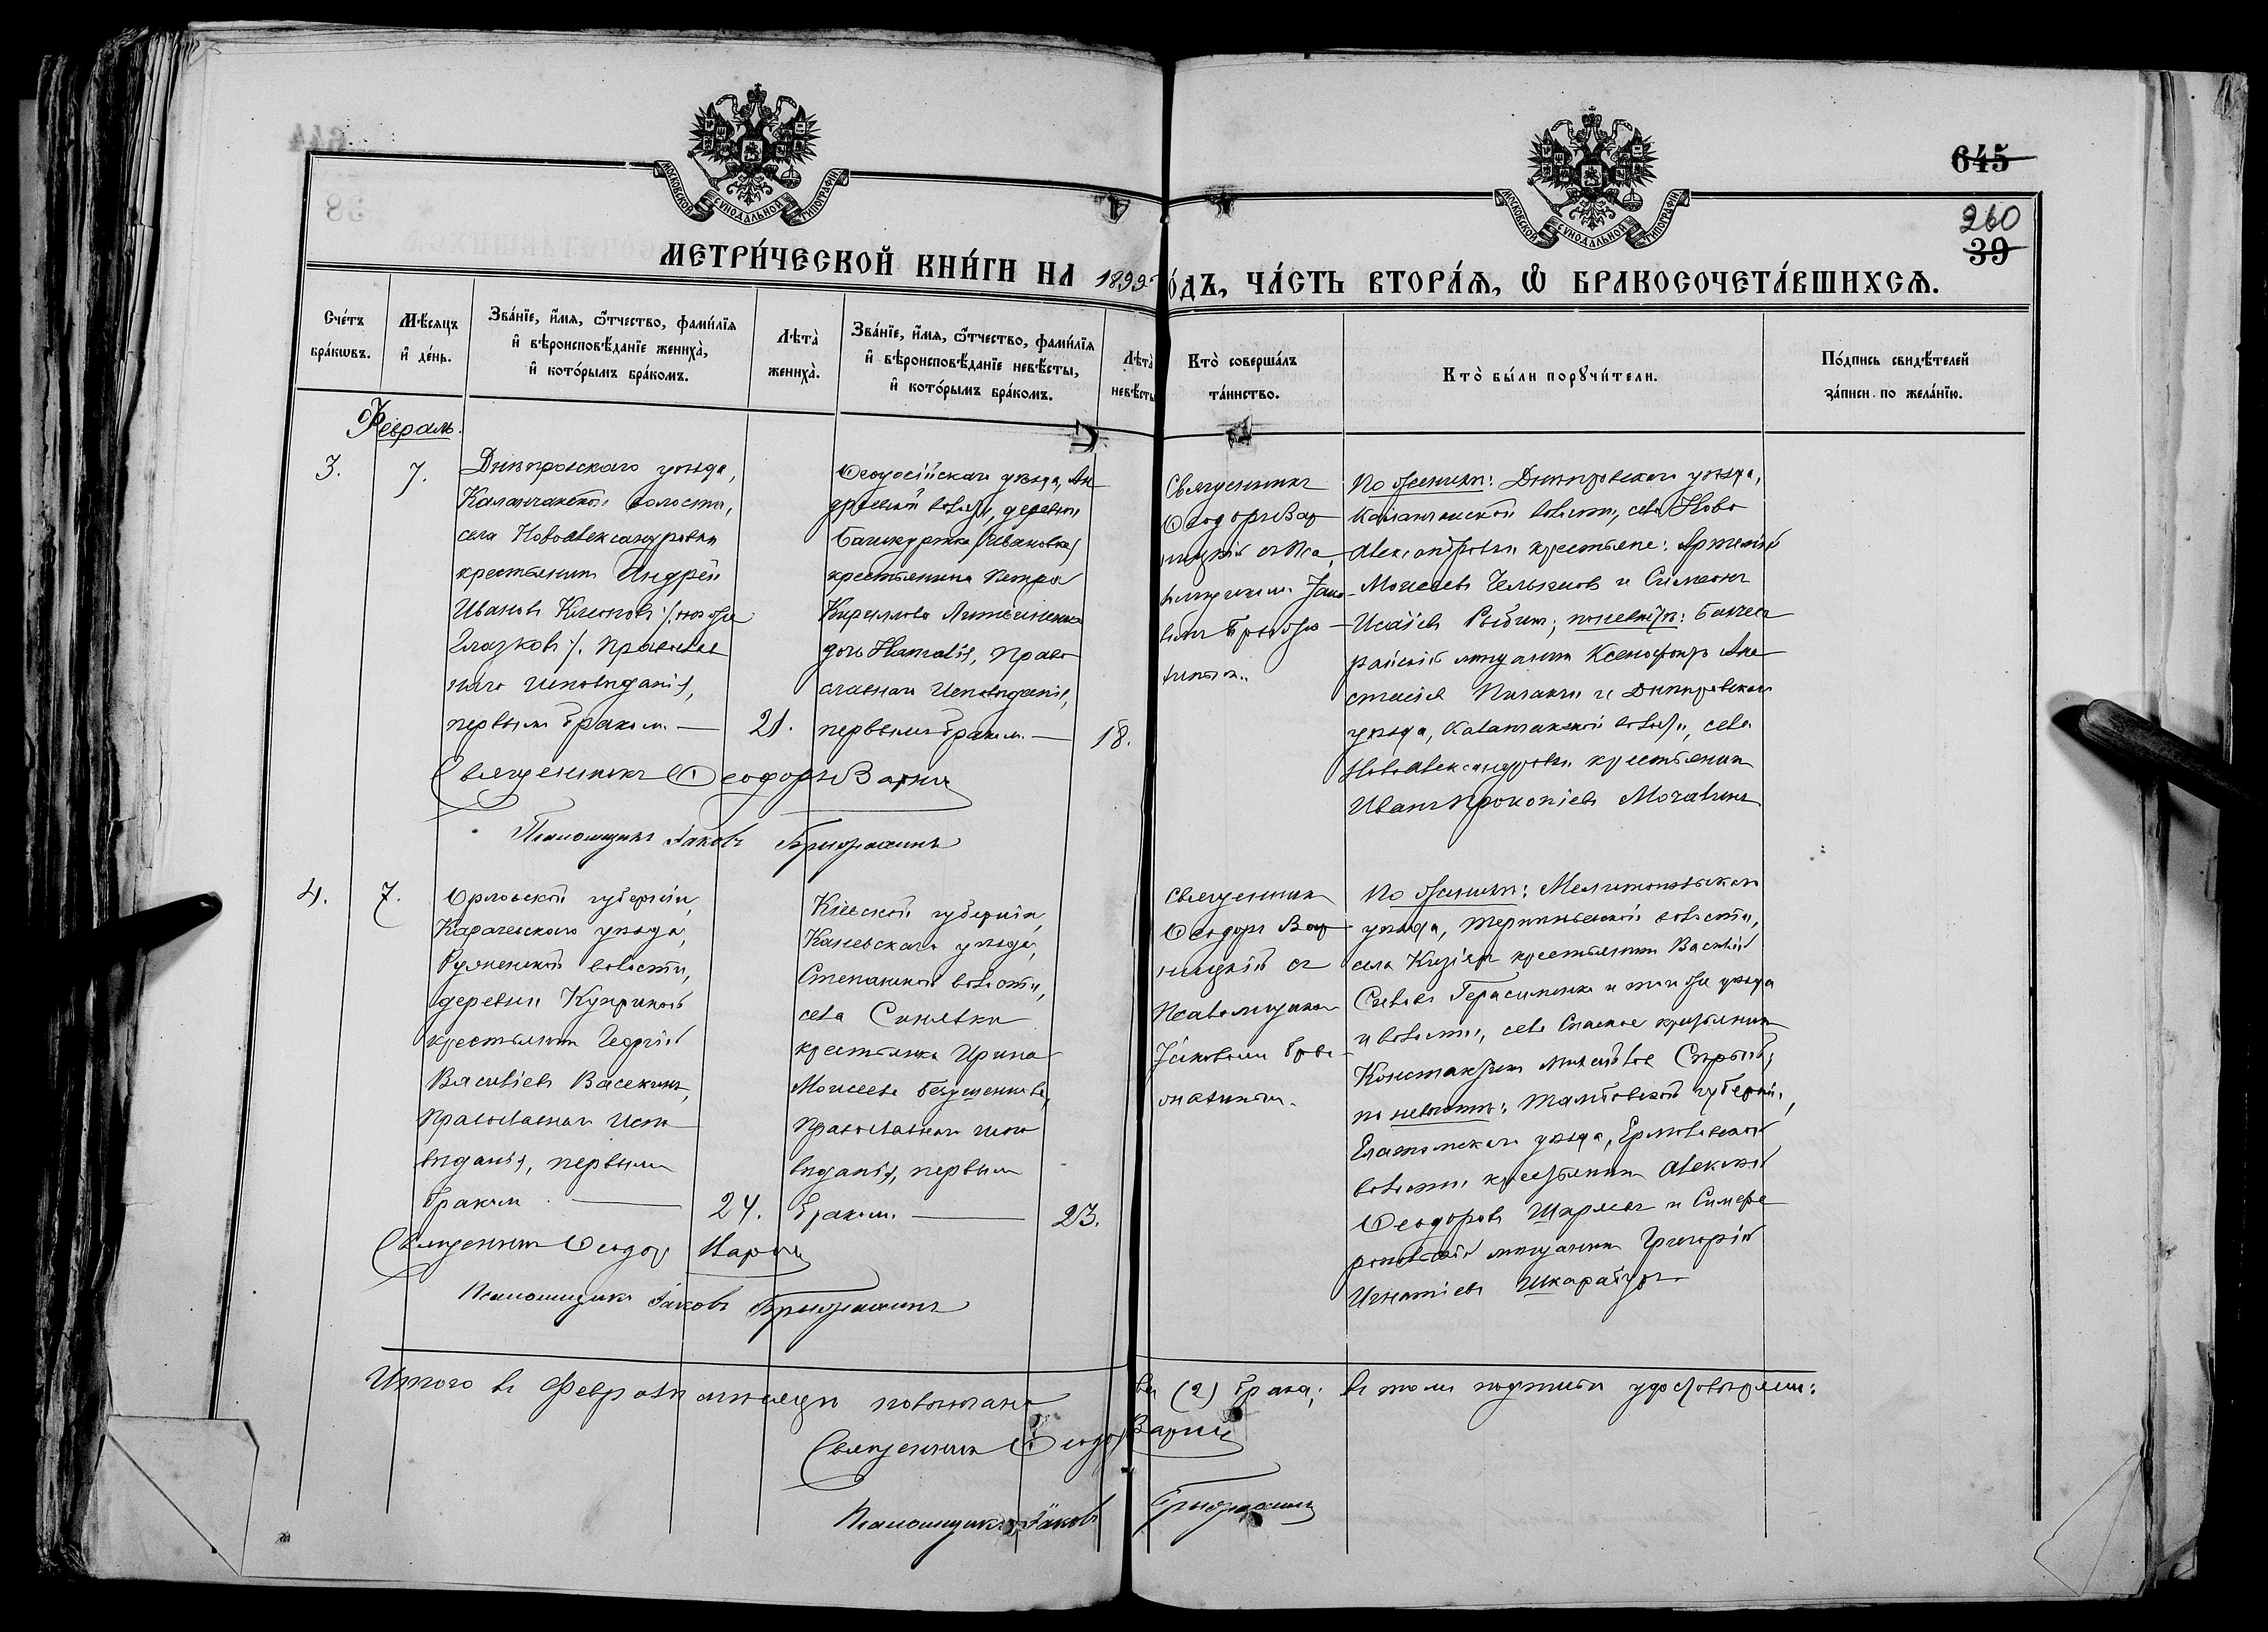 645
260
39
МОСКОВСКОЙ СѴНОДАЛЬНОЙ ТИПОГРАФІИ
МОСКОВСКОЙ СѴНОДАЛЬНОЙ ТИПОГРАФІИ
МЕТРИ́ЧЕСКОЙ КНИ́ГИ НА 1899 ГО́ДЪ, ЧА́СТЬ ВТОРА́Я, Ѡ БРАКОСОЧЕТА́ВШИХСЯ.
Сче́тъ
бра́кѡвъ.
Мѣ́сяцъ
и҆ де́нь.
Зва́нїе, и҆́мя, ѻ҆́тчество, фами́лїя
и҆ вѣроисповѣ́данїе жениха̀,
и҆ кото́рымъ бра́комъ.
Лѣта̀
жениха̀.
Зва́нїе, и҆́мя, ѻ҆́тчество, фами́лїя
и҆ вѣроисповѣ́данїе невѣ́сты,
и҆ кото́рымъ бра́комъ.
Лѣта̀
невѣ́сты
Кто̀ соверша́лъ
та́инство.
Кто̀ бы́ли порꙋчи́тели.
По́дпись свидѣ́телей
за́писи по жела́нїю.
Февраль.
3.
7.
Днѣпровскаго уѣзда,
Каланчакской волости,
села Новоалександровки
крестьянинъ Андрей
Ивановъ Климовъ /: онъ же
Глазковъ :/. Православ
наго исповѣданія,
первымъ бракомъ. —
21.
Ѳеодосійскаго уѣзда, Ан
дреевской волости, деревни
(Ивановка)
крестьянина Петра
Кириллова Литвиненка
дочь Наталія, право
славнаго исповѣданія,
первымъ бракомъ. —
18.
Священникъ
Ѳеодоръ Вар
ницкій съ Пса
ломщикомъ Іако
вомъ
По женихѣ: Днѣпровскаго уѣзда,
Каланчакской волости, села Ново
Александровки крестьяне: Артемій
Моисеевъ и Симеонъ
Исаіевъ Рыбинъ; по невѣстѣ: Бахчиса
райскій мѣщанинъ Ксенофонтъ Ана
стасіевъ и Днѣпровскаго
уѣзда, Каланчакской волости, села
Новоалександровки крестьянинъ
Иванъ Прокопіевъ Мочалинъ
Священникъ Ѳеодоръ Варниц
Псаломщикъ Іаковъ
4.
7.
Орловской губерніи,
Карачевскаго уѣзда,
волости,
деревни
крестьянинъ Георгій
Василіевъ Васекинъ,
православнаго испо
вѣданія, первымъ
бракомъ. —
24.
Кіевской губерніи,
Каневскаго уѣзда,
Степанской волости,
села Синявки
крестьянка Ирина
Моисеева
православнаго испо
вѣданія, первымъ
бракомъ. —
23.
Священникъ
Ѳеодоръ Вар
ницкій съ
Псаломщикомъ
Іаковомъ
По женихѣ: Мелитопольскаго
уѣзда, Терпѣньевской волости,
села Кизіяръ крестьянинъ Василій
Саввовъ Герасименко и того же уѣзда
и волости, села Спаское крестьянинъ
Константинъ
по невѣстѣ: Тамбовской губерніи,
Елатомскаго уѣзда, Ермоловской
волости крестьянинъ Алексѣй
Ѳеодоровъ и Симфе
ропольскій мѣщанинъ Григорій
Игнатіевъ
Священникъ Ѳеодоръ Варниц
Псаломщикъ Іаковъ
Итого въ Февралѣ мѣсяцѣ повѣнчано два (2) брака; въ томъ подписью удостовѣряемъ:
Священникъ Ѳеодоръ Варниц
Псаломщикъ Іаковъ